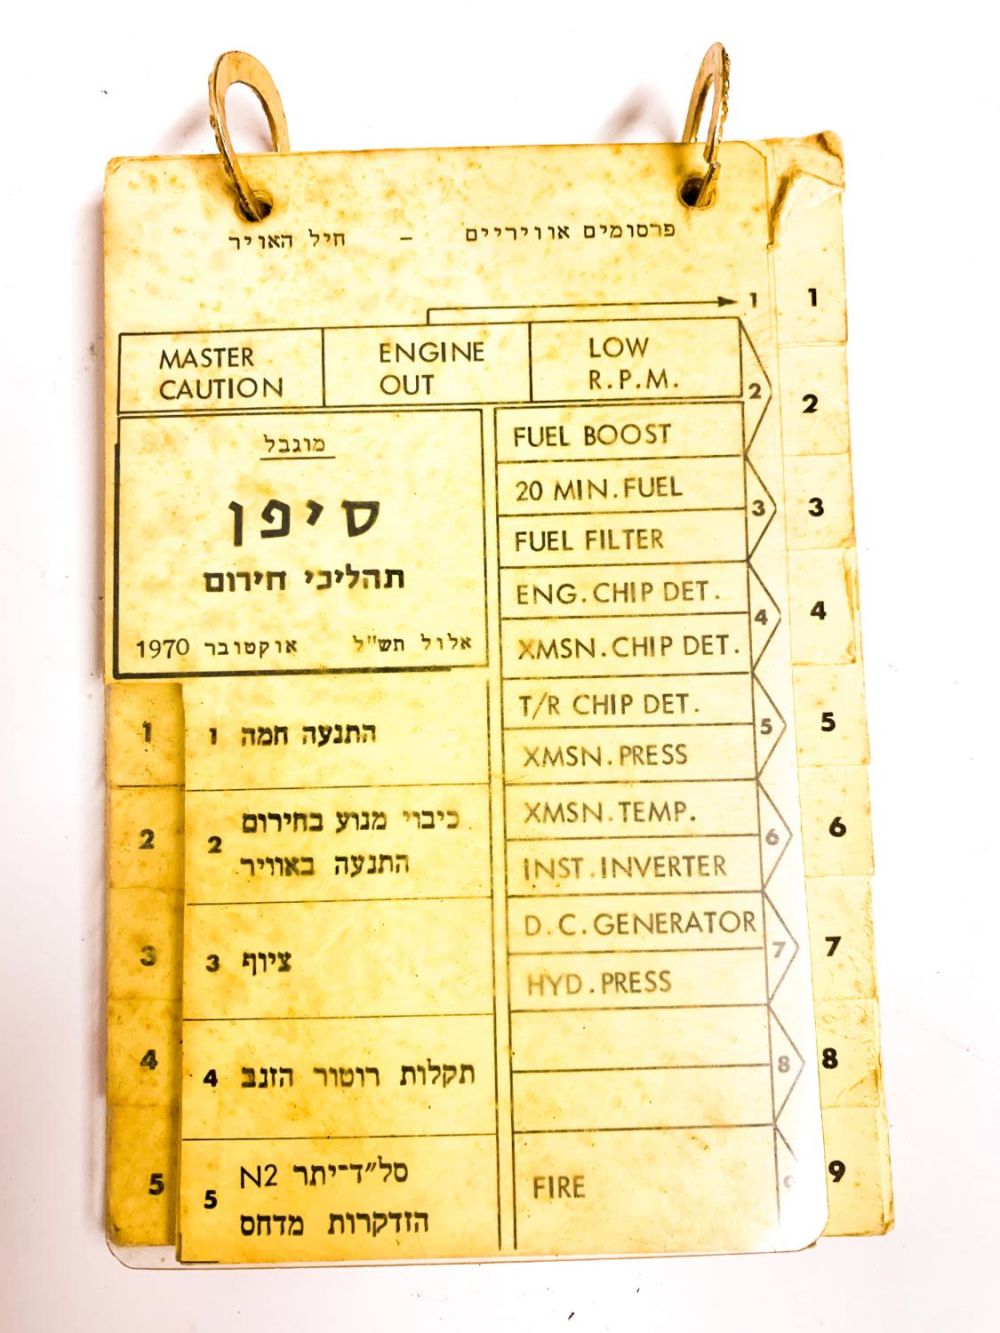 פרסומים אוויריים - חיל האויר
1
MASTER
CAUTION
ENGINE
OUT
LOW
R.P.M.
2
FUEL BOOST
20 MIN. FUEL
3
FUEL FILTER
ENG. CHIP DET.
4
XMSN. CHIP DET.
T/R CHIP DET.
5
XMSN. PRESS
XMSN. TEMP.
6
INST. INVERTER
D.C. GENERATOR
7
HYD. PRESS
8
FIRE
מוגבל
סיפן
תהליכי חירום
אלול תש"ל אוקטובר 1970
1 התנעה חמה
2 כיבוי מנוע בחירום
התנעה באוויר
3 ציוף
4 תקלות רוטור הזנב
5 סל"ד-יתר N2
הזדקרות מדחס
1
2
3
4
5
1
2
3
4
5
6
7
8
9